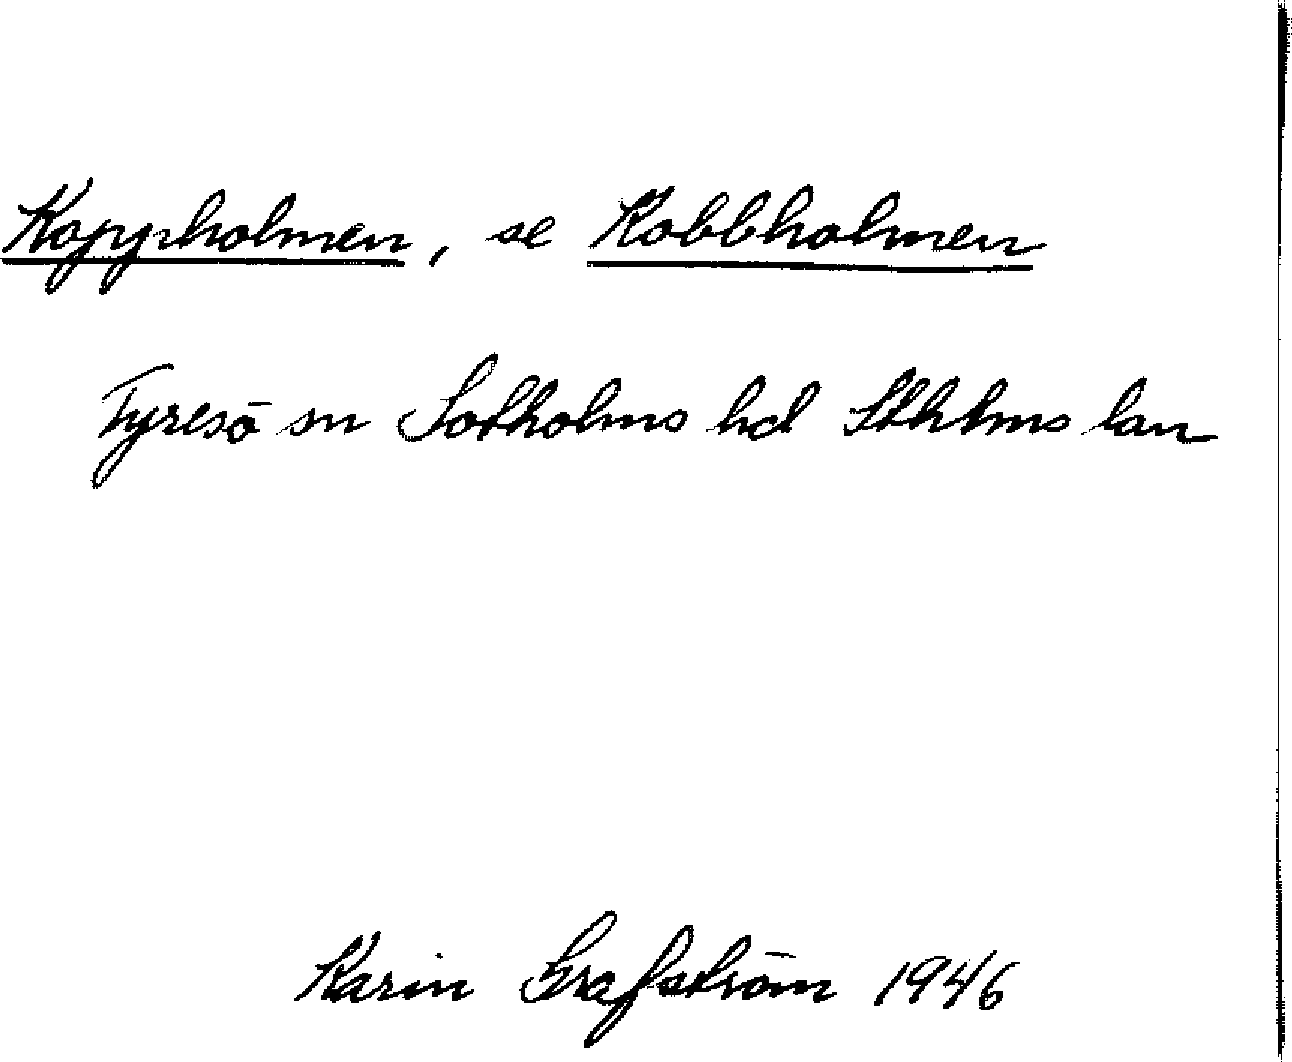 Koppholmen, se Kobbholmen
Tyresö sn Sotholms hd Sthlms län
Karin Grafström 1946